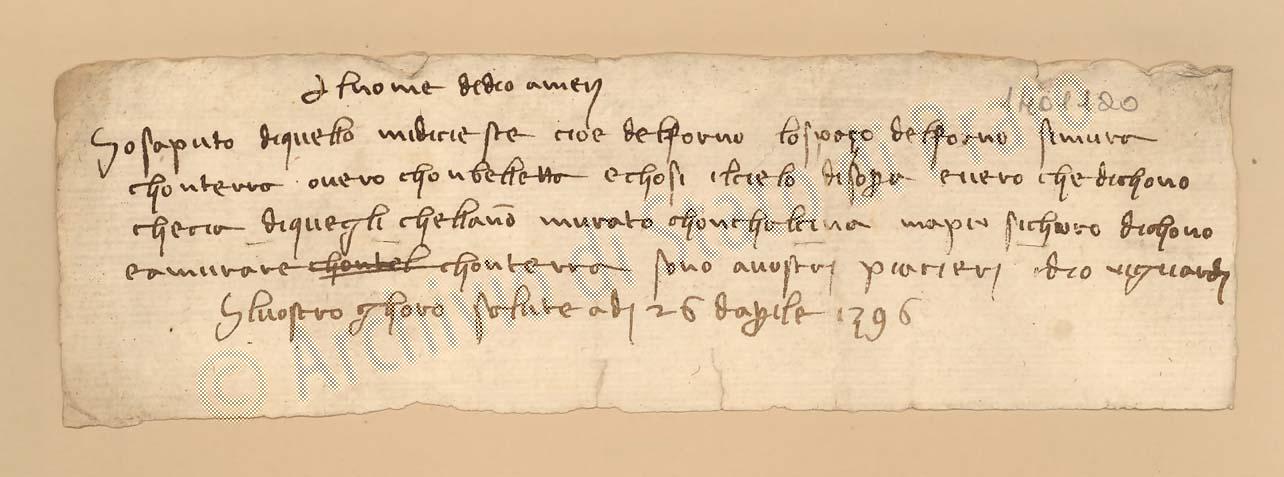 Al nome di dio amen
1401180
Ho saputo di quello mi diciesete cioe del forno lo spazo del forno si mura
chon terra overo chon belletta e chosi il cielo di sopra e vero che dichono
che cia di quegli che llano murato chon chalcina ma piu sichuro dichono
e a murare chon tel chon terra sono a vostri piacieri idio vi guardi
Il vostro ghoro salute a di 26 d aprile 1396
© Archivio di Stato di Prato